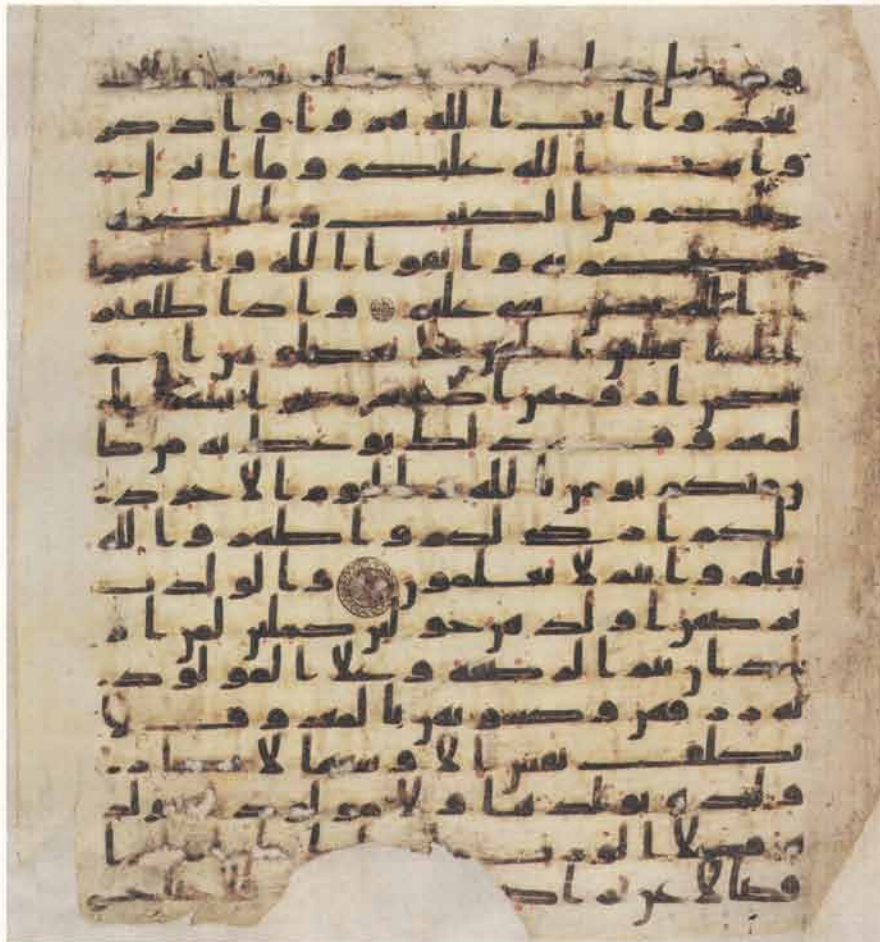 تتخذوا ايت الله هزوا واذكر
وا نعمت الله عليكم وما انزل
عليكم من الكتب والحكمة
يعظكم به واتقوا الله واعلموا
ان الله بكل شي عليم واذا طلقتم
النسا فبلغن اجلهن فلا تعضلوهن ان
ينكحن ازوجهن اذا ترضوا بينهم با
لمعروف ذلك يوعظ به من كا
ن منكم يومن بالله واليوم الاخر ذ
لكم ازكى لكم واطهر والله
يعلم وانتم لا تعلمون والولدت
يرضعن اولدهن حولين كملين لمن ا
راد ان يتم الرضعة وعلى المولود
له رزقهن وكسوتهن بالمعروف لا
تكلف نفس الا وسعها لا تضار
ولدة بولدها ولا مولود له بولد
ه وعلى الورث
فصالا عن تراض فلا جناح